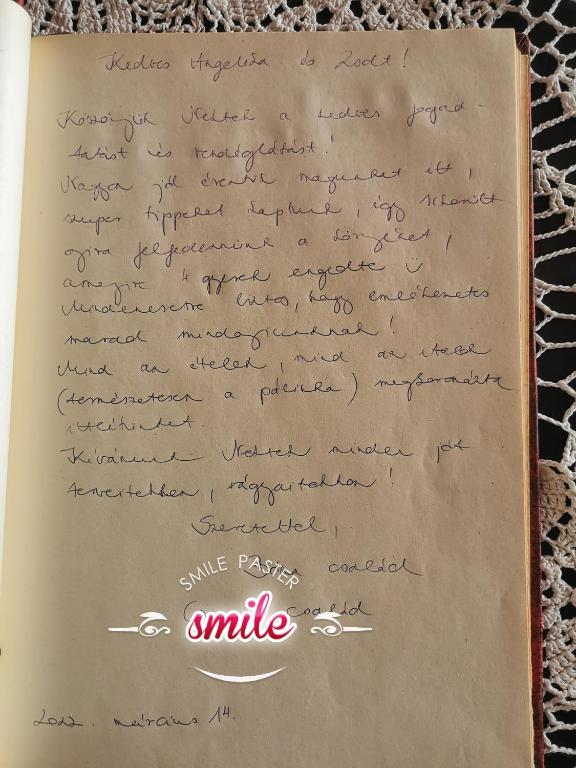 Kedves Angelika és Zsolt!
Köszönjük Nektek a kedves fogad-
tatást és vendéglátást!
Nagyon jól éreztük magunkat itt,
szuper tippeket kaptunk, így sikerült
újra felfedeznünk a környéket,
amennyire 4 gyerek engedte ü
Mindenesetre biztos, hogy emlékezetes
marad mindagyiunknak!
Mind az ételek, mind az italok
(természetesen a pálinka) megkoronázta
ittlétünket.
Kívánunk Nektek minden jót
terveitekben, vágyaitokban!
Szeretettel,
család
család
SMILE PASTER
smile
2022. március 14.